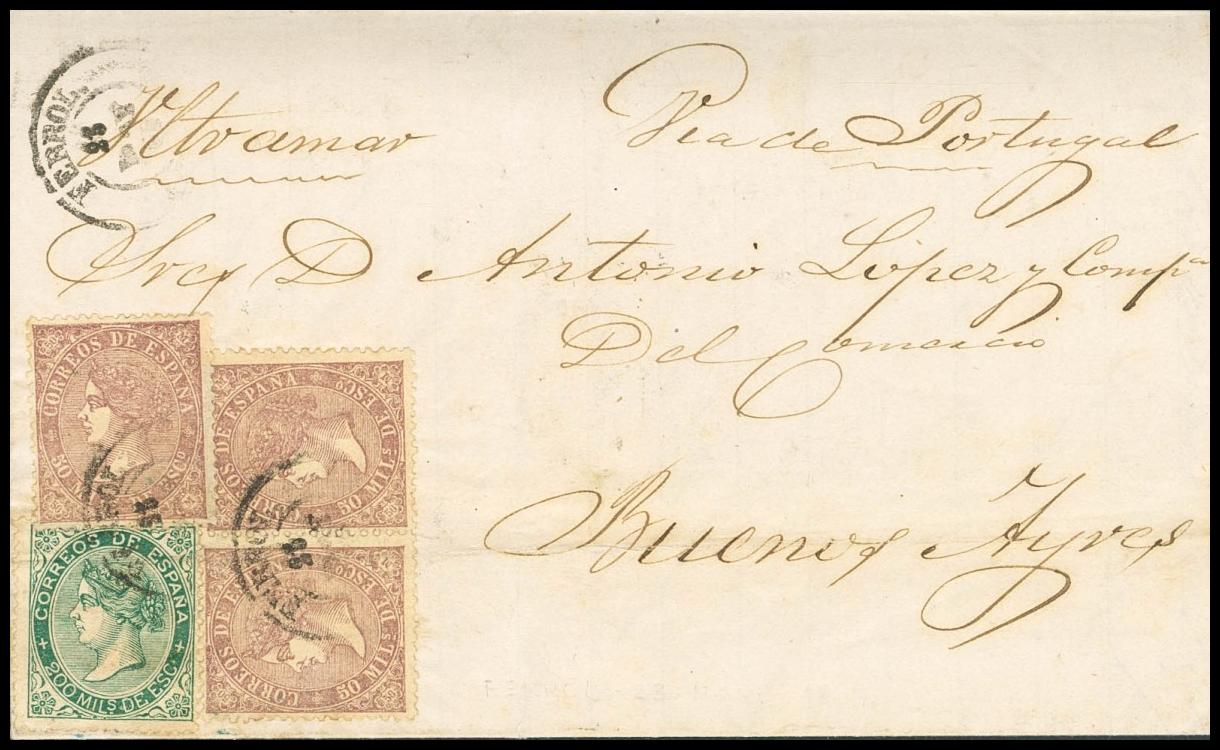 FERROL
Ultramar
Via de Portugal
Sres D Antonio López y Compª
Del Comercio
Buenos Ayres
CORREOS DE ESPAÑA
50
ESCº
CORREOS DE ESPAÑA
50 MIL.S DE ESCº
CORREOS DE ESPAÑA
50 MIL.S DE ESCº
CORREOS DE ESPAÑA
200 MILS. DE ESC.
FERROL
FERROL